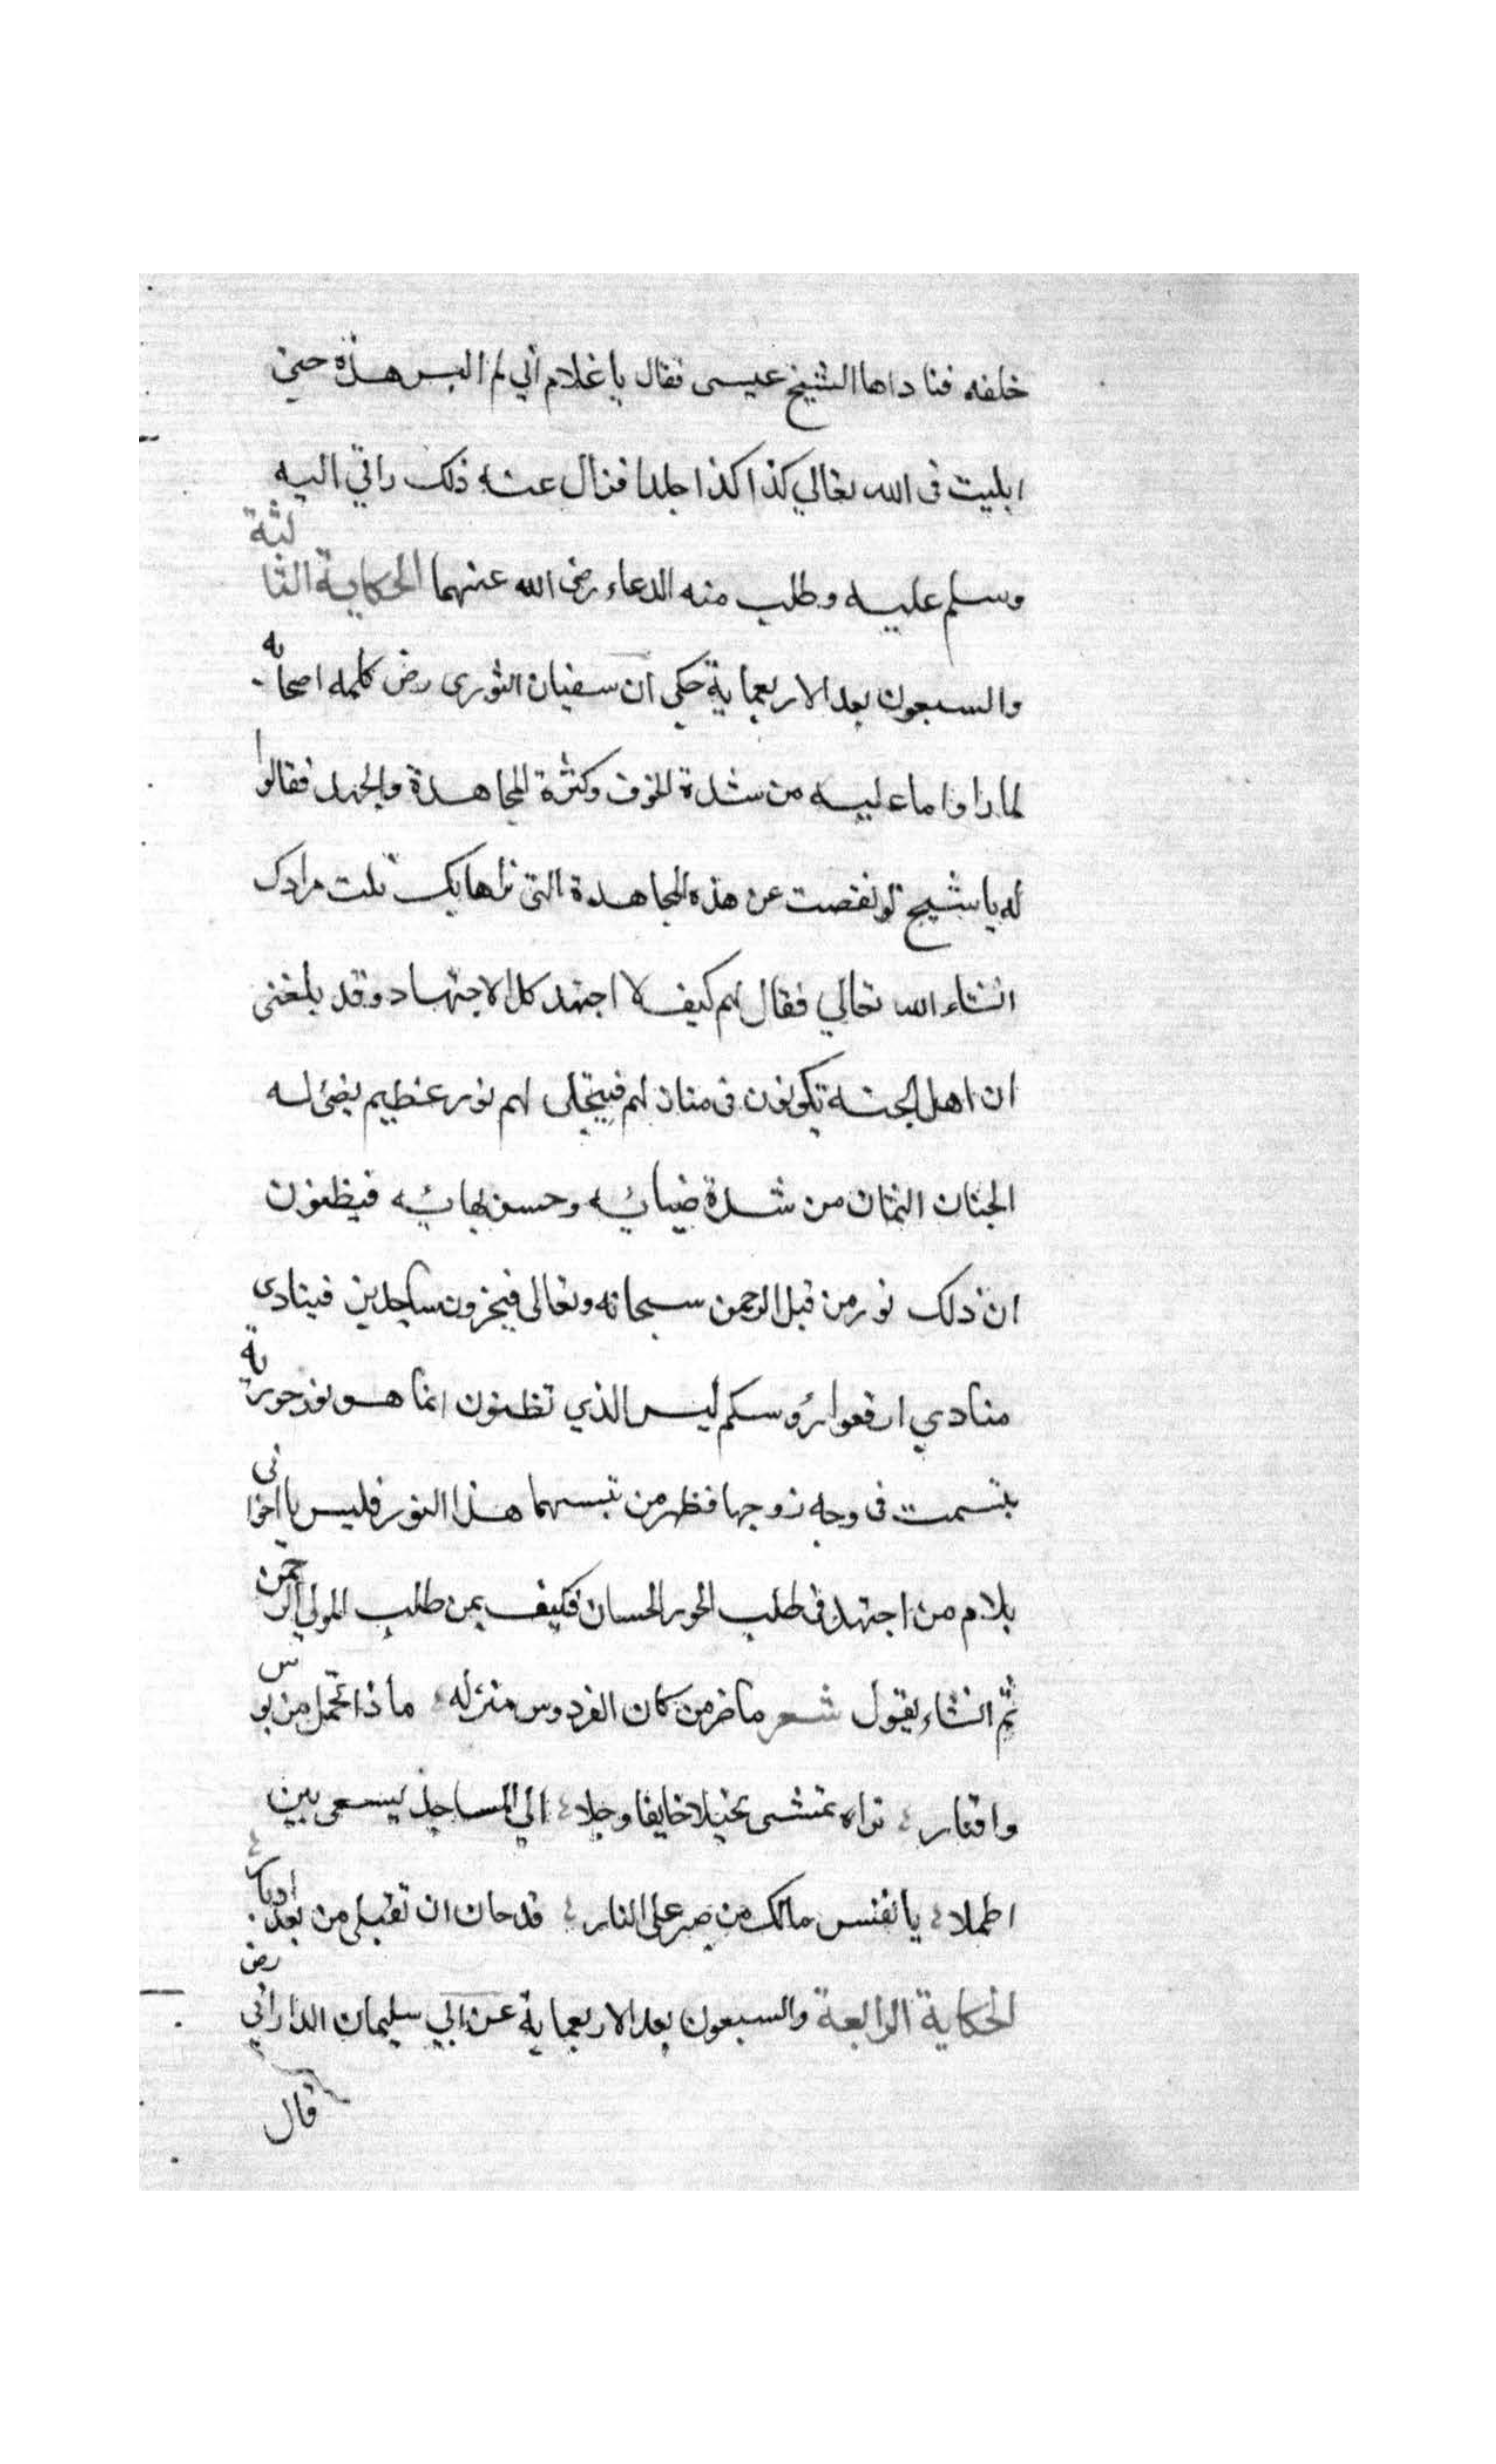 خلفه فناداها الشيخ عيسى فقال يا غلام أني لم البس هذه حتى
ابليت فى الله تعالي كذا كذا جلدا فزال عنه ذلك واتي اليه
وسلم عليه وطلب منه الدعاء رضى الله عنهما الحكاية الثالثة
والسبعون بعد الاربعماية حكي ان سفيان الثورى رض كلمه اصحابه
لما راوا ما عليه من شدة الخوف وكثرة المجاهدة والجهد فقالوا
له يا شيخ لو نقصت عن هذه المجاهدة التى نراها بك نلت مرادك
انشاء الله تعالي فقال لهم كيف لا اجتهد كل الاجتهاد وقد بلغنى
ان اهل الجنة يكونون فى منازلهم فيتجلى لهم نور عظيم يضئ له
الجنان الثمان من شدة ضيائه وحسن بهائه فيظنون
ان ذلك نور من قبل الرحمن سبحانه وتعالى فيخرون ساجدين فينادى
منادي ارفعوا رؤسكم ليس الذي تظنون انما هو نور حورية
تبسمت فى وجه زوجها فظهر من تبسمها هذا النور فليس يا اخوانى
يلام من اجتهد فى طلب الحور الحسان فكيف بمن طلب المولي الرحمن
ثم انشاء يقول شعر ما ضر من كان الفردوس منزله ماذا تحمل من بوس
واقتار تراه يمشى نحيلا خايفا وجلا الي المساجد يسعى بين
اطملا يا نفس مالك من صبر على النار قد حان ان تقبلى من بعد ادبار
الحكاية الرابعة والسبعون بعد الاربعماية عن ابي سليمان الداراني رض
قال